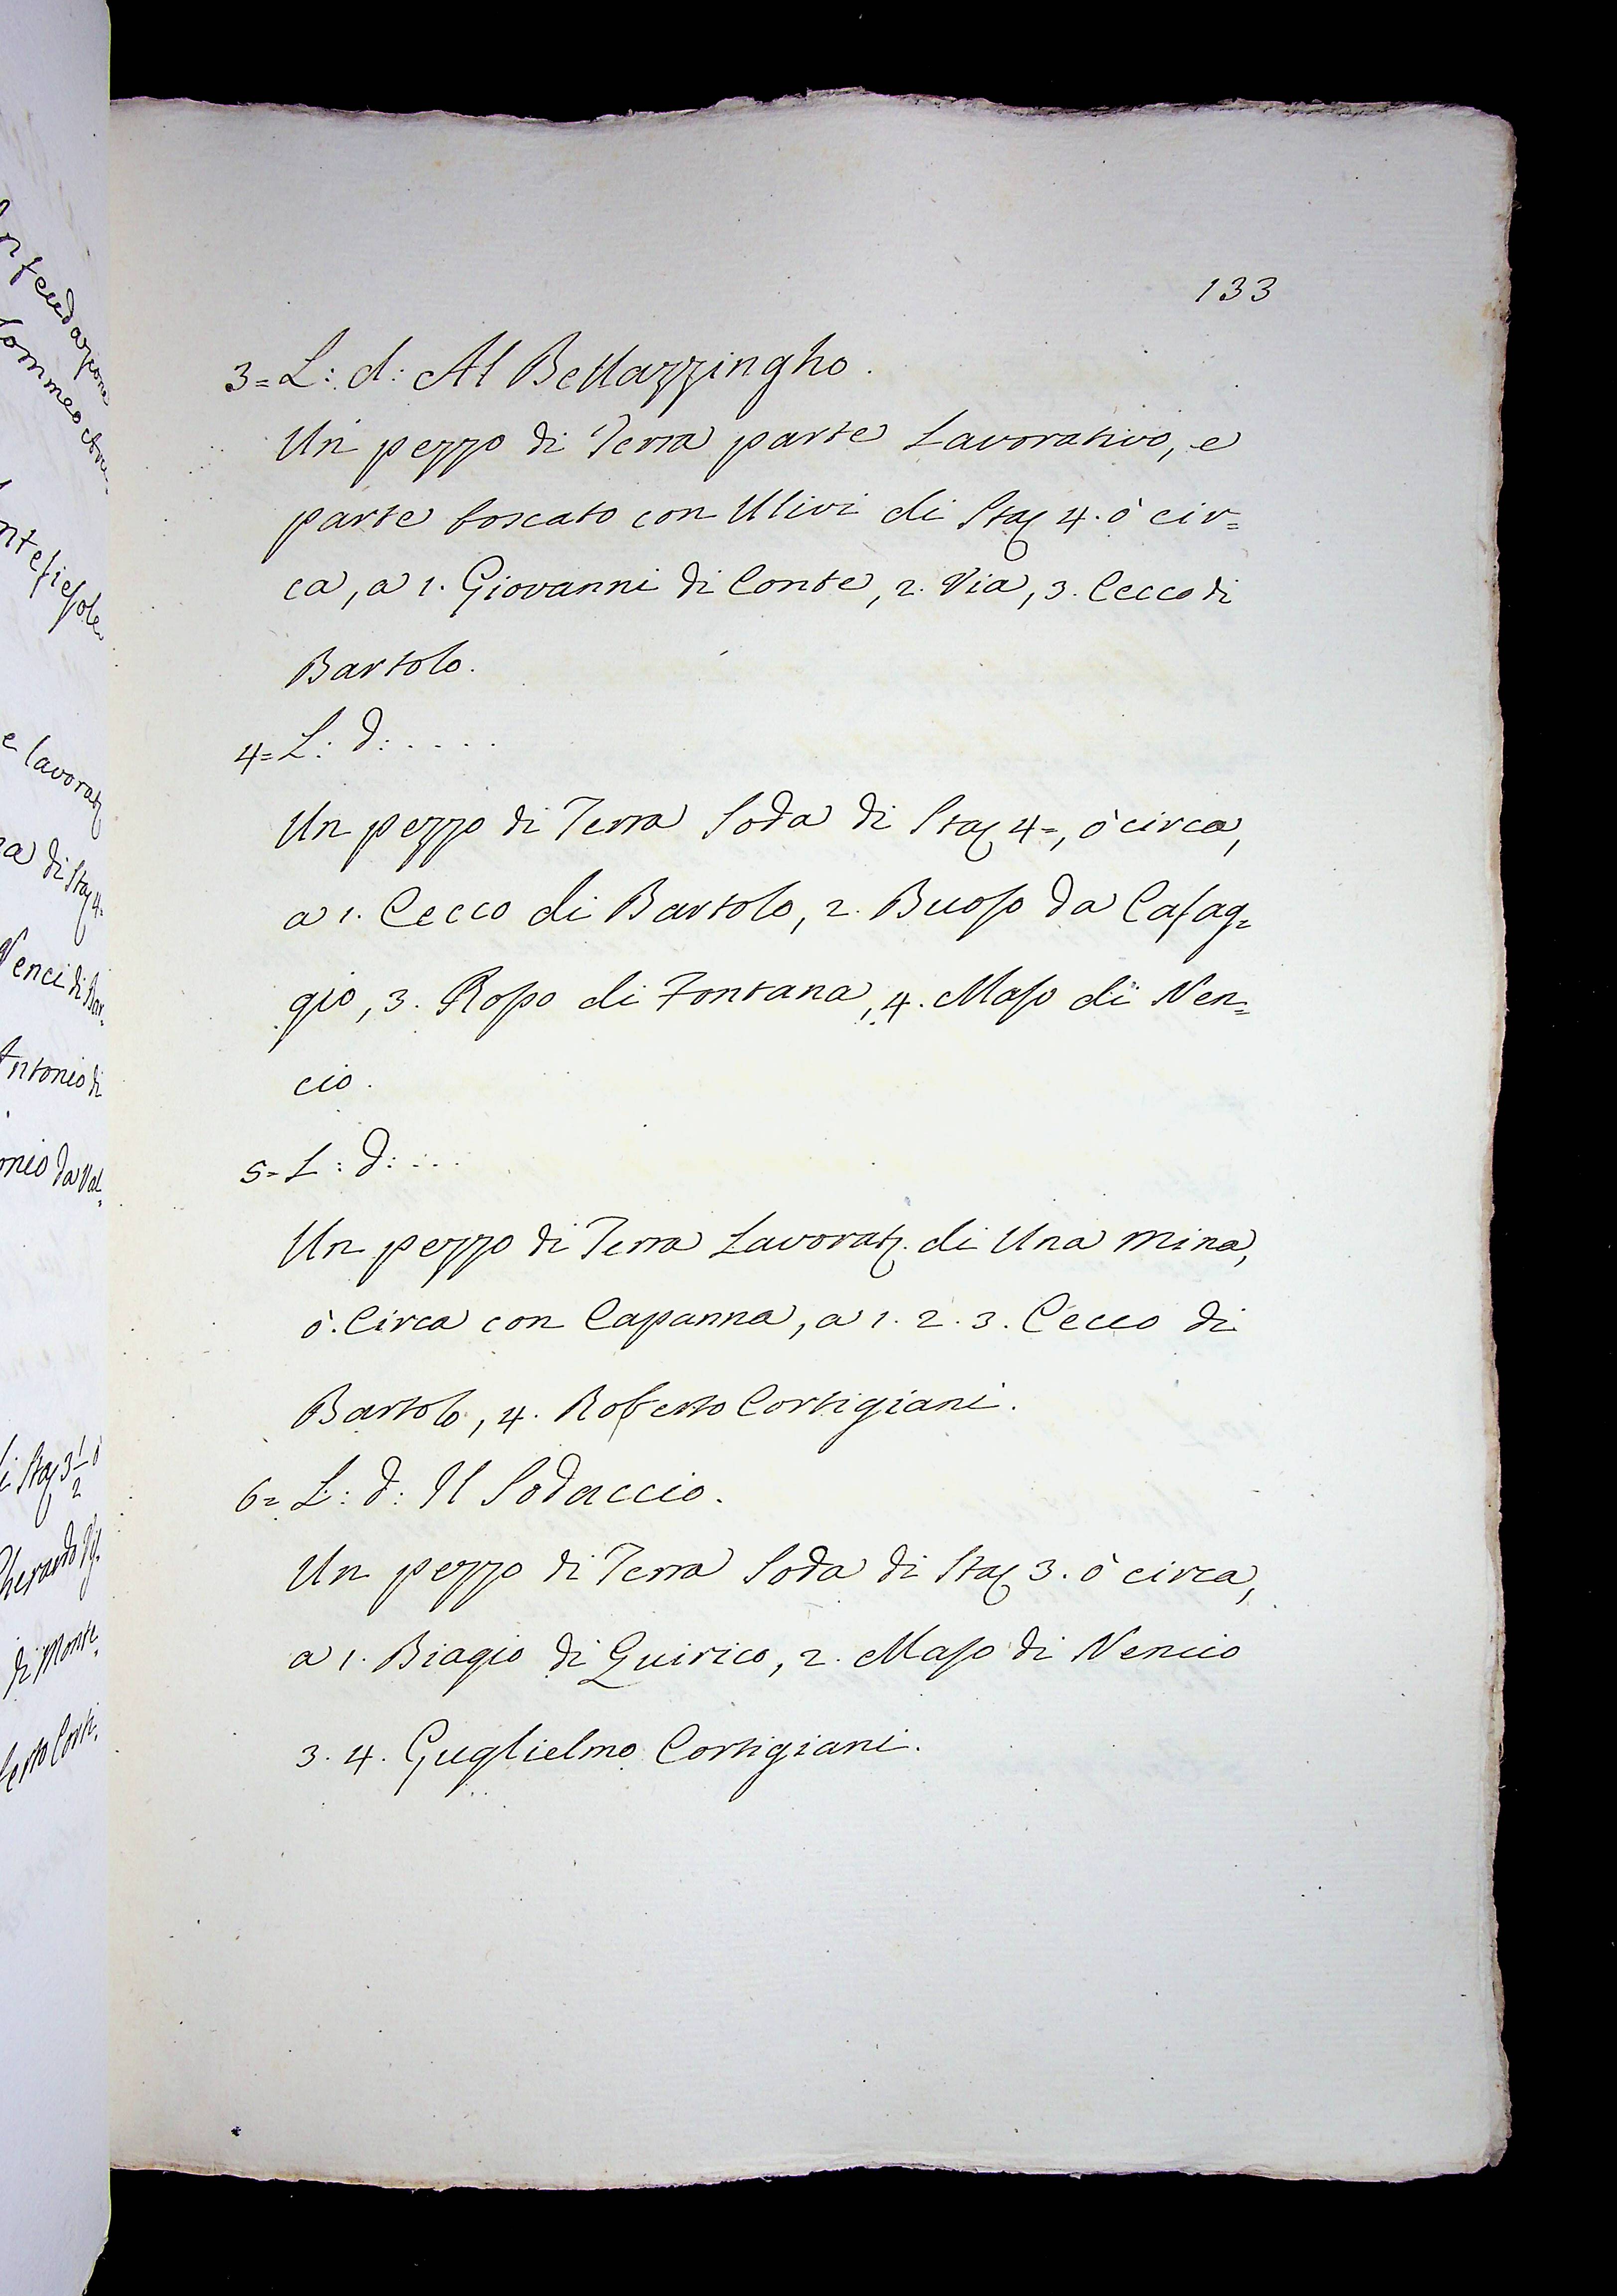 133
3= L: d: Al Bellazzingho.
Un pezzo di Terra parte Lavorativo, e
parte boscato con Ulivi di Staҁ 4. ò cir=
ca, a 1. Giovanni di Conte, 2. Via, 3. Cecco di
Bartolo.
4= L: d: . . . .
Un pezzo di Terra Soda di Staҁ 4=, ò circa,
a 1. Cecco di Bartolo, 2. Buoso da Cafag=
gio, 3. Roso di Fontana, 4. Maso di Nen=
cio.
5= L: d: . . .
Un pezzo di Terra Lavoratҁ. di Una mina,
ò. Circa con Capanna, a 1. 2. 3. Cecco di
Bartolo, 4. Roberto Cortigiani.
6= L: d: Il Sodaccio.
Un pezzo di Terra Soda di Staҁ 3. ò circa,
a 1. Biagio di Quirico, 2. Maso di Nencio
3. 4. Guglielmo Cortigiani.